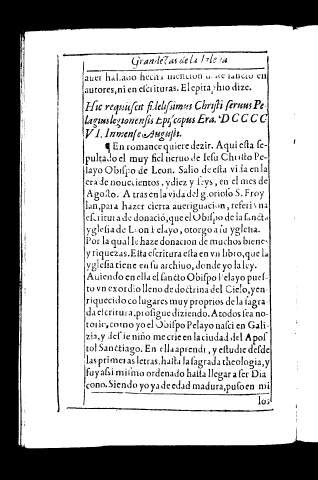 Grandezas de la Iglesia
auer hallado hecha mencion de sancto en
autores, ni en escrituras. El epitaphio dize.
Hic requiescit fidelissimus Christi seruus Pe
lagius legionensis Episcopus Era. DCCCC
VI. In mense Augusti.
¶ En romance quiere dezir. Aqui esta se-
pultado el muy fiel sieruo de Iesu Christo Pe-
layo Obispo de Leon. Salio de esta vida en la
era de nouecientos, y diez y seys, en el mes de
Agosto. Atras en la vida del glorioso S. Froy
lan, para hazer cierta aueriguacion, referi vna
escritura de donació, que el Obispo de la sancta
yglesia de Leon Pelayo, otorgo a su yglesia.
Por la qual le haze donacion de muchos bienes
y riquezas. Esta escritura esta en vn libro, que la
yglesia tiene en su archiuo, donde yo la ley.
Auiendo en ella el sancto Obispo Pelayo pues-
to vn exordio lleno de doctrina del Cielo, y en-
riquecido co lugares muy proprios de la sagra
da escritura, prosigue diziendo. A todos sea no-
torio, como yo el Obispo Pelayo nasci en Gali-
zia, y desde niño me crie en la ciudad del Apos
tol Sanctiago. En ella aprendi, y estudie desde
las primeras letras, hasta la sagrada theologia, y
fuy assi mismo ordenado hasta llegar a ser Dia
cono. Siendo yo ya de edad madura, puso en mi
los